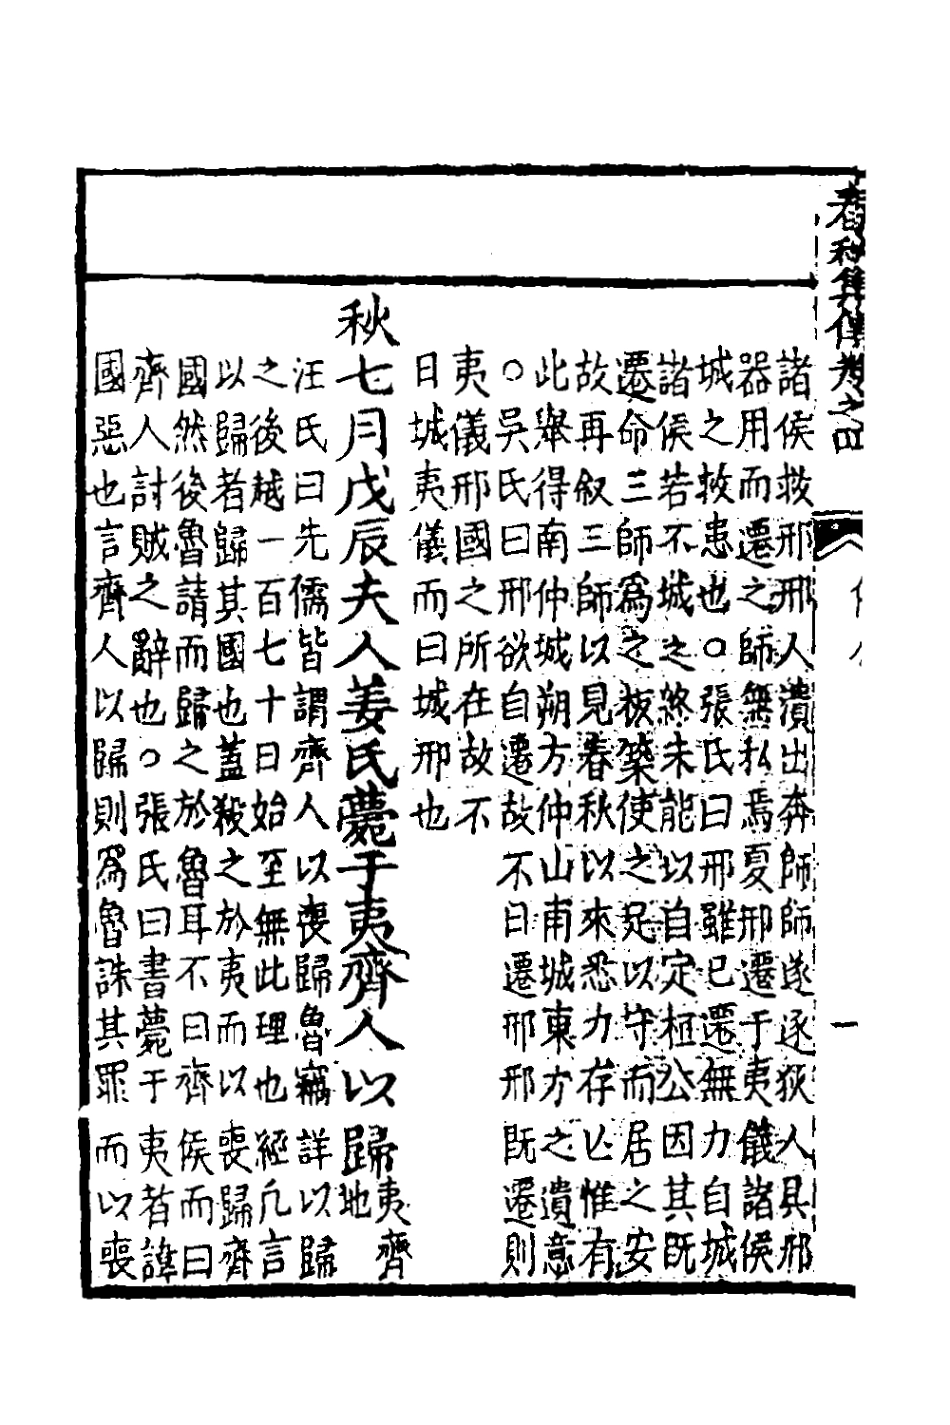 春秋集傳卷之四
諸侯救邢邢人潰出奔師師遂逐狄人具邢
器用而遷之師無私焉夏邢遷于夷儀諸侯
城之救患也○張氏曰邢雖已遷無力自城
諸侯若不城之終未能以自定桓公因其既
遷命三師爲之板築使之足以守而居之安
故再叙三師以見春秋以來悉力存亡惟有
此舉得南仲城朔方仲山甫城東方之遺意
○吳氏曰邢欲自遷故不曰遷邢邢既遷則
夷儀邢國之所在故不
曰城夷儀而曰城邢也
秋七月戊辰夫人姜氏薨于夷齊人以歸夷齊地
汪氏曰先儒皆謂齊人以喪歸魯竊詳以歸
之後越一百七十日始至無此理也經凡言
以歸者歸其國也蓋殺之於夷而以喪歸齊
國然後魯請而歸之於魯耳不曰齊侯而曰
齊人討賊之辭也○張氏曰書薨于夷者諱
國惡也言齊人以歸則爲魯誅其罪而以喪
一